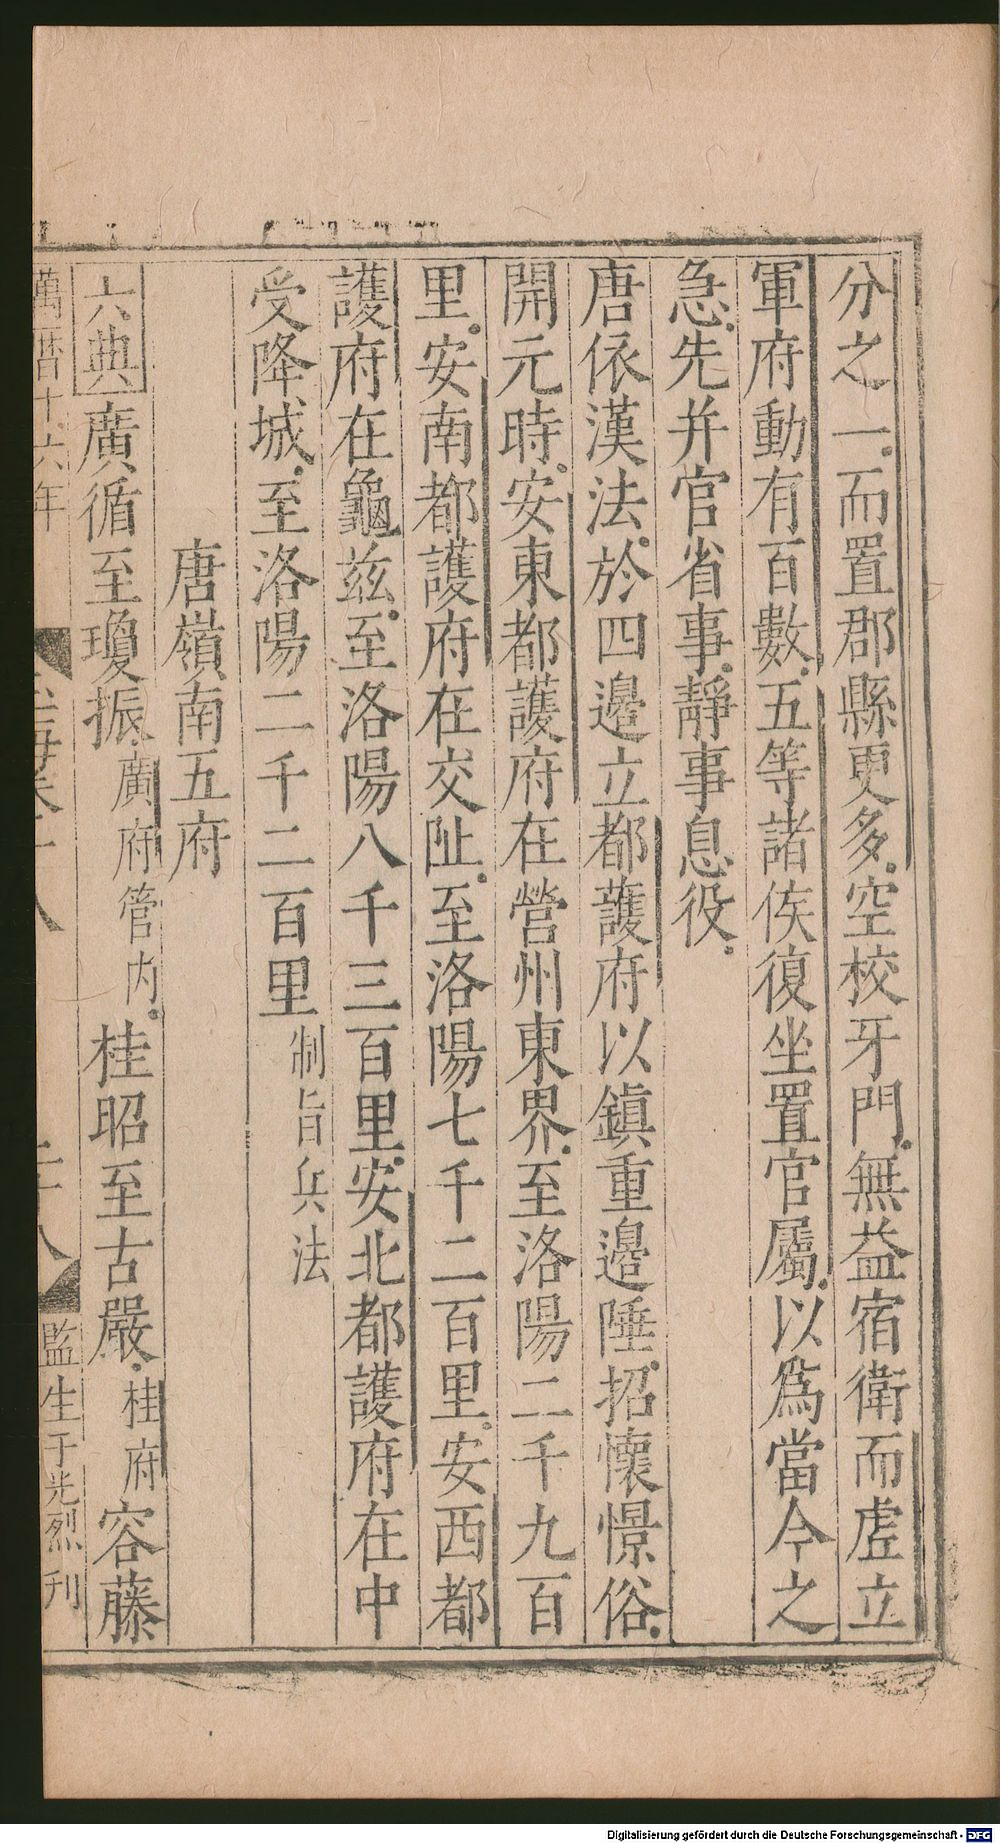 分之一而置郡縣更多空校牙門無益宿衛而虛立
軍府動有百數五等諸侯復坐置官屬以爲當今之
急先并官省事靜事息役
唐依漢法於四邊立都護府以鎮重邊陲招懷憬俗
開元時安東都護府在營州東界至洛陽二千九百
里安南都護府在交阯至洛陽七千二百里安西都
護府在龜茲至洛陽八千三百里安北都護府在中
受降城至洛陽二千二百里制旨兵法
唐嶺南五府
六典廣循至瓊振廣府管内桂昭至古嚴桂府容藤
萬曆十六年 二十八 監生于光烈刊
Digitalisierung gefördert durch die Deutsche Forschungsgemeinschaft - DFG